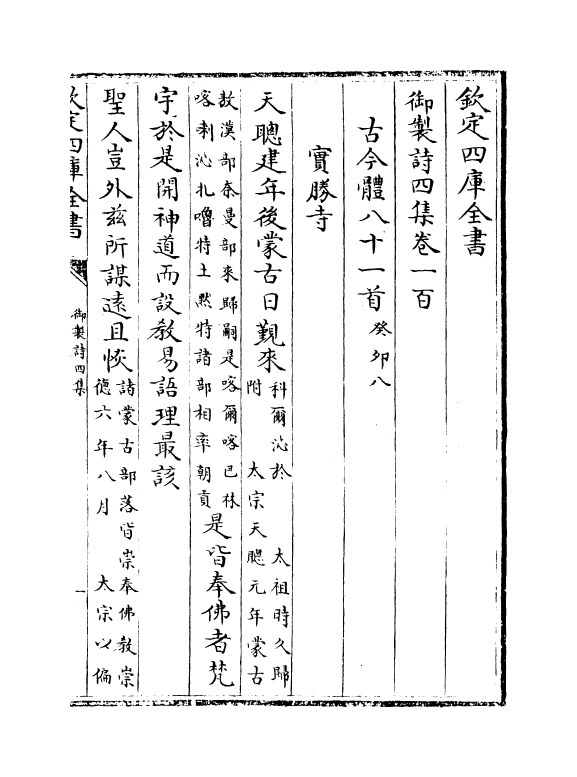 欽定四庫全書
御製詩四集卷一百
古今體八十一首癸卯八
實勝寺
天聰建年後蒙古日覲來科爾沁於 太祖時久歸
附 太宗天聰元年蒙古
敖漢部奈曼部來歸嗣是喀爾喀巴林
喀剌沁扎嚕特土默特諸部相率朝貢是皆奉佛者梵
宇於是開神道而設教易語理最該
聖人豈外兹所謀遠且恢諸蒙古部落皆崇奉佛教崇
德六年八月 太宗以偏
欽定四庫全書
御製詩四集
一